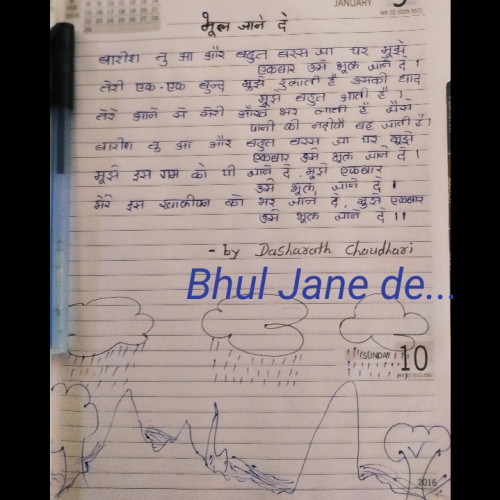 JANUARY
भूल जाने दे
बारीश तु आ और बहुत बरस जा पर मुझे
एकबार उसे भूल जाने दे ।
तेरी एक-एक बुन्द मुझे रुलाती है उसकी याद
मुझे बहुत आती है ।
तेरे आने से मेरी आँखे भर जाती है जैसे
पानी की नदीयाँ बह जाती है।
बारीश तु आ और बहुत बरस जा पर मुझे
एकबार उसे भूल जाने दे ।
मुझे इस गम को पी जाने दे, मुझे एकबार
उसे भूल जाने दे ।
मेरे इस खालीपन को भर जाने दे, मुझे एकबार
उसे भूल जाने दे ।।
- by Dasharath Chaudhari
Bhul Jane de...
SUNDAY 10
2016